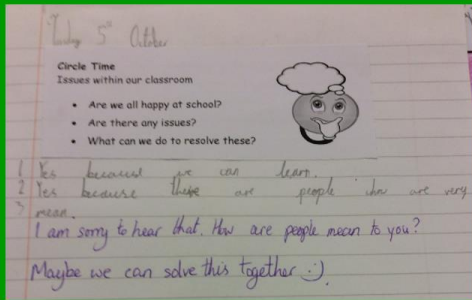 Tuesday 5th October
Circle Time
Issues within our classroom
• Are we all happy at school?
• Are there any issues?
• What can we do to resolve these?
1 Yes because we can learn.
2 Yes because there are people who are very
3 mean.
I am sorry to hear that. How are people mean to you?
Maybe we can solve this together :)